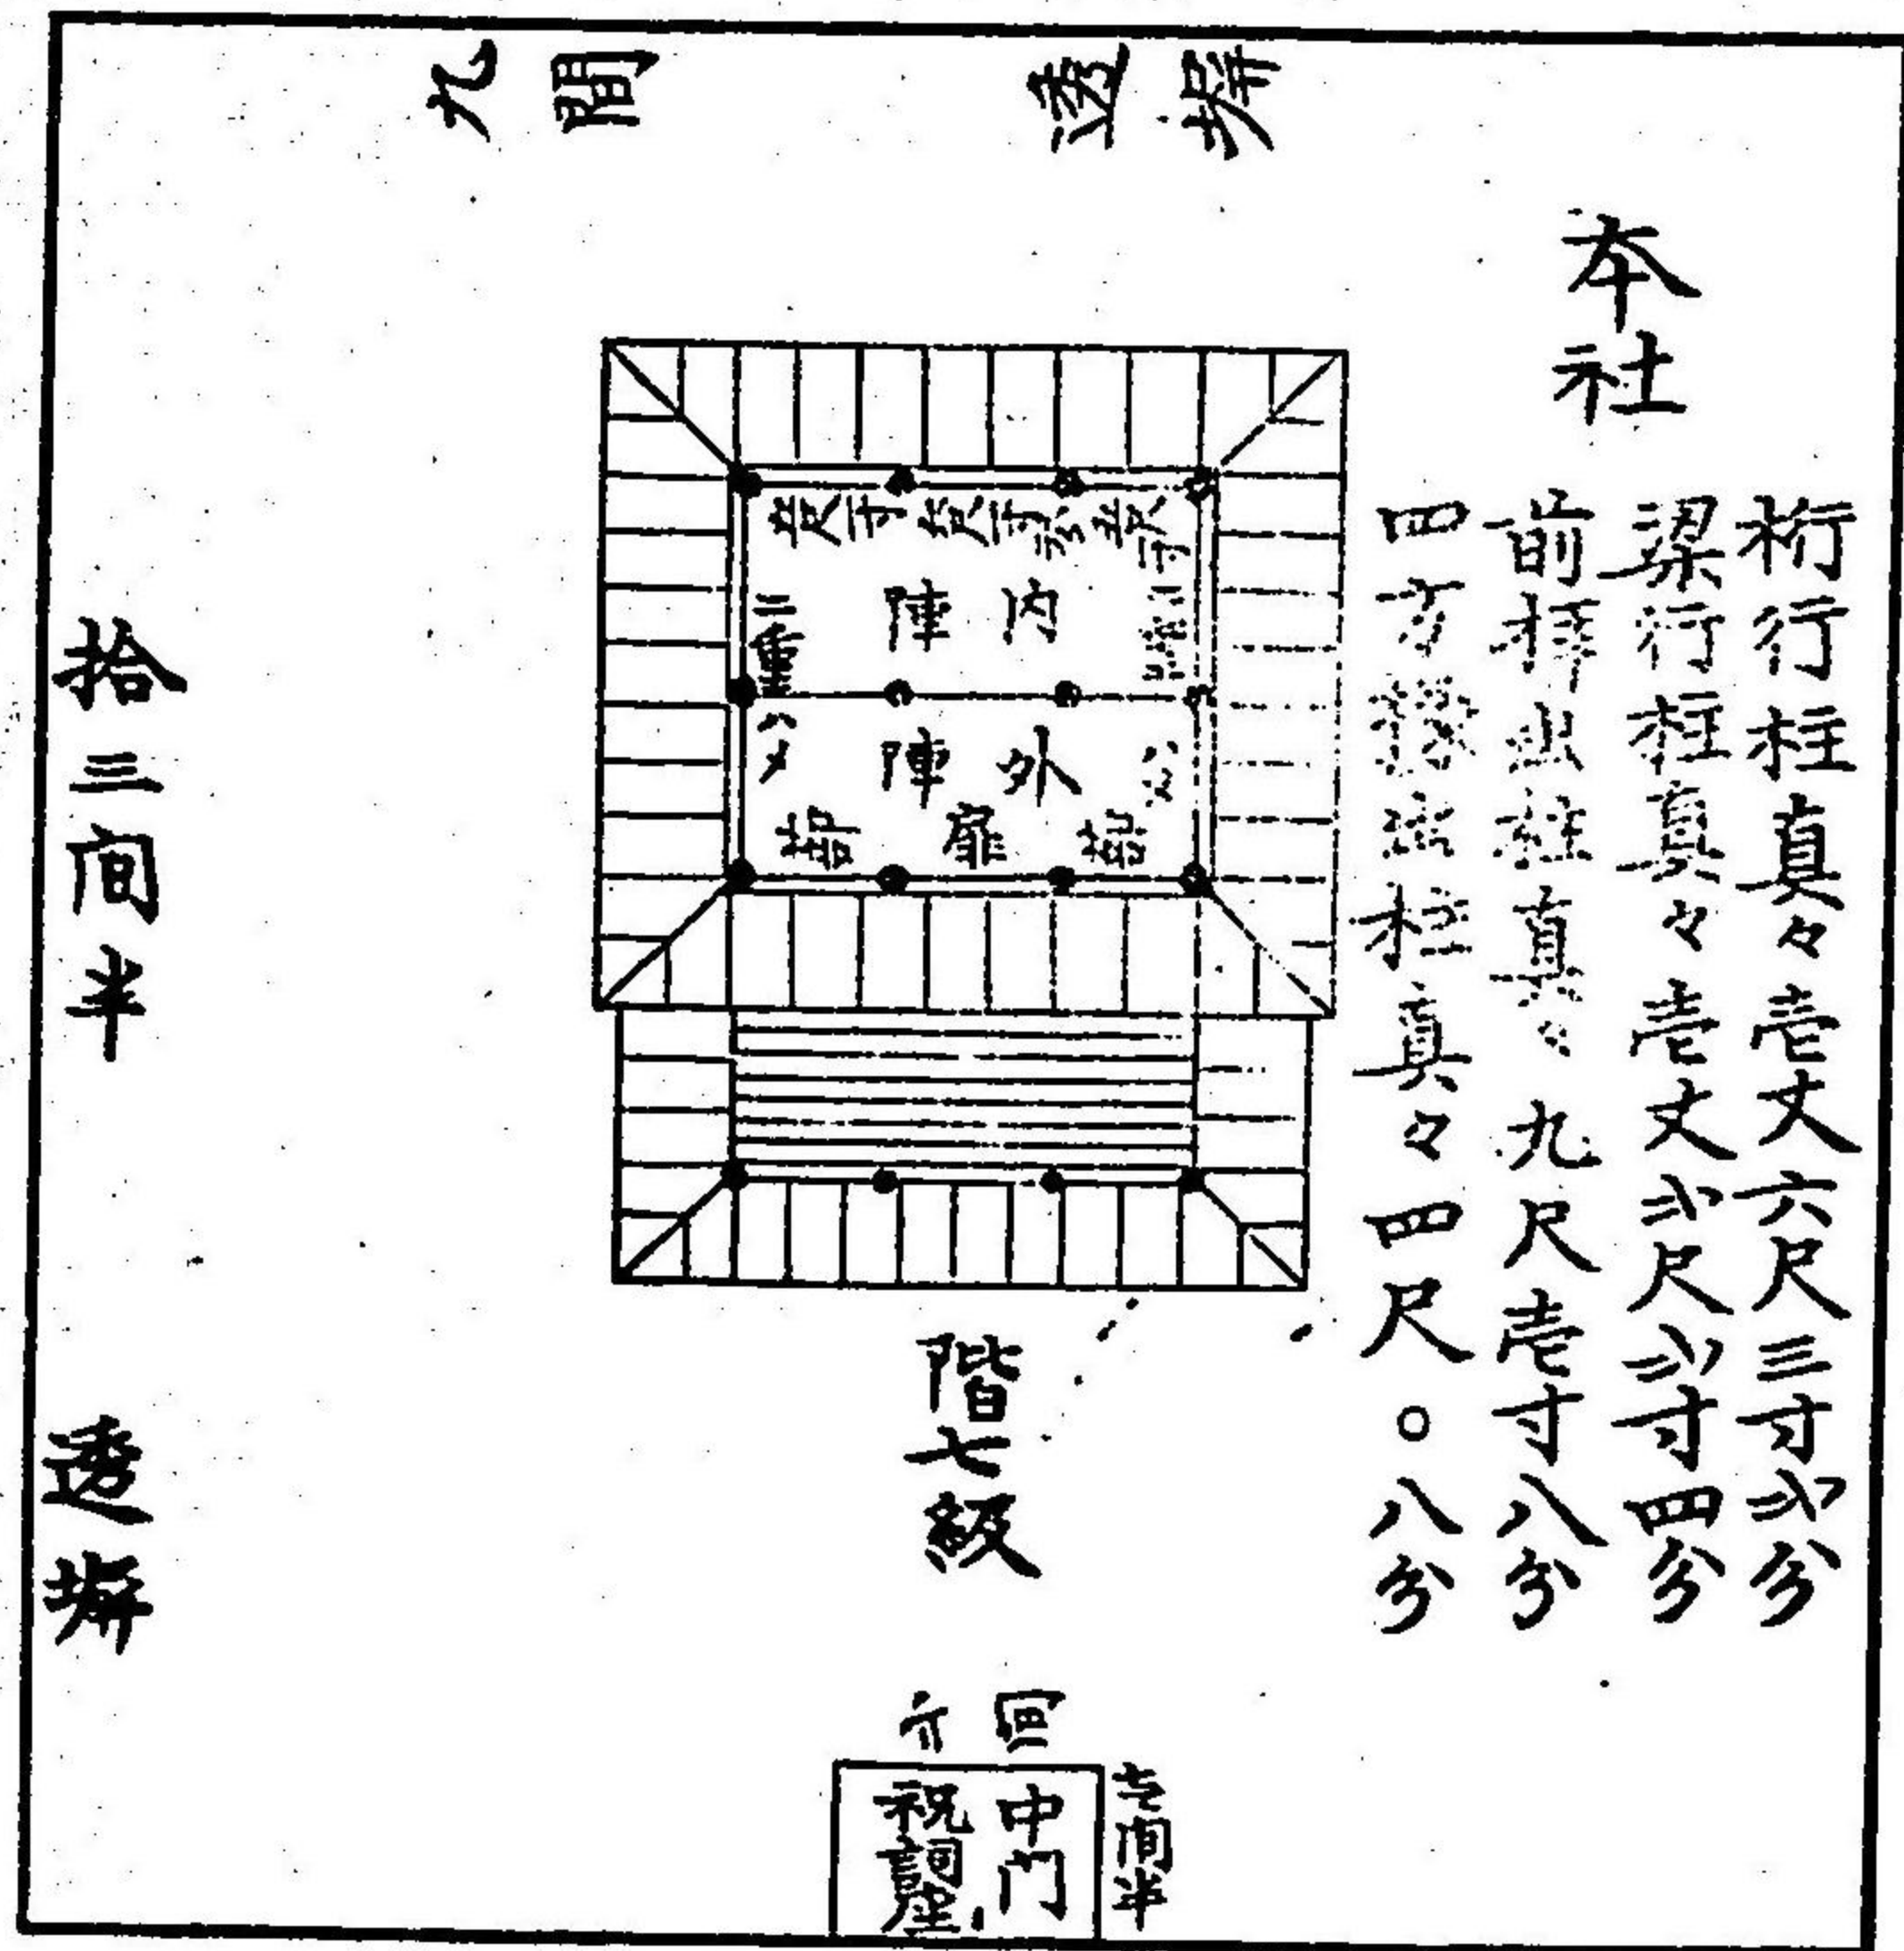 透塀
九間
本社
桁行柱真々壱丈六尺三寸弐分
梁行柱真々壱丈弐尺弐寸四分
前拝出柱真々九尺壱寸八分
四方椽出柱真々四尺〇八分
内陣
二重
外陣
扉
階七級
拾三間半
透塀
中門
祝詞座
壱間半